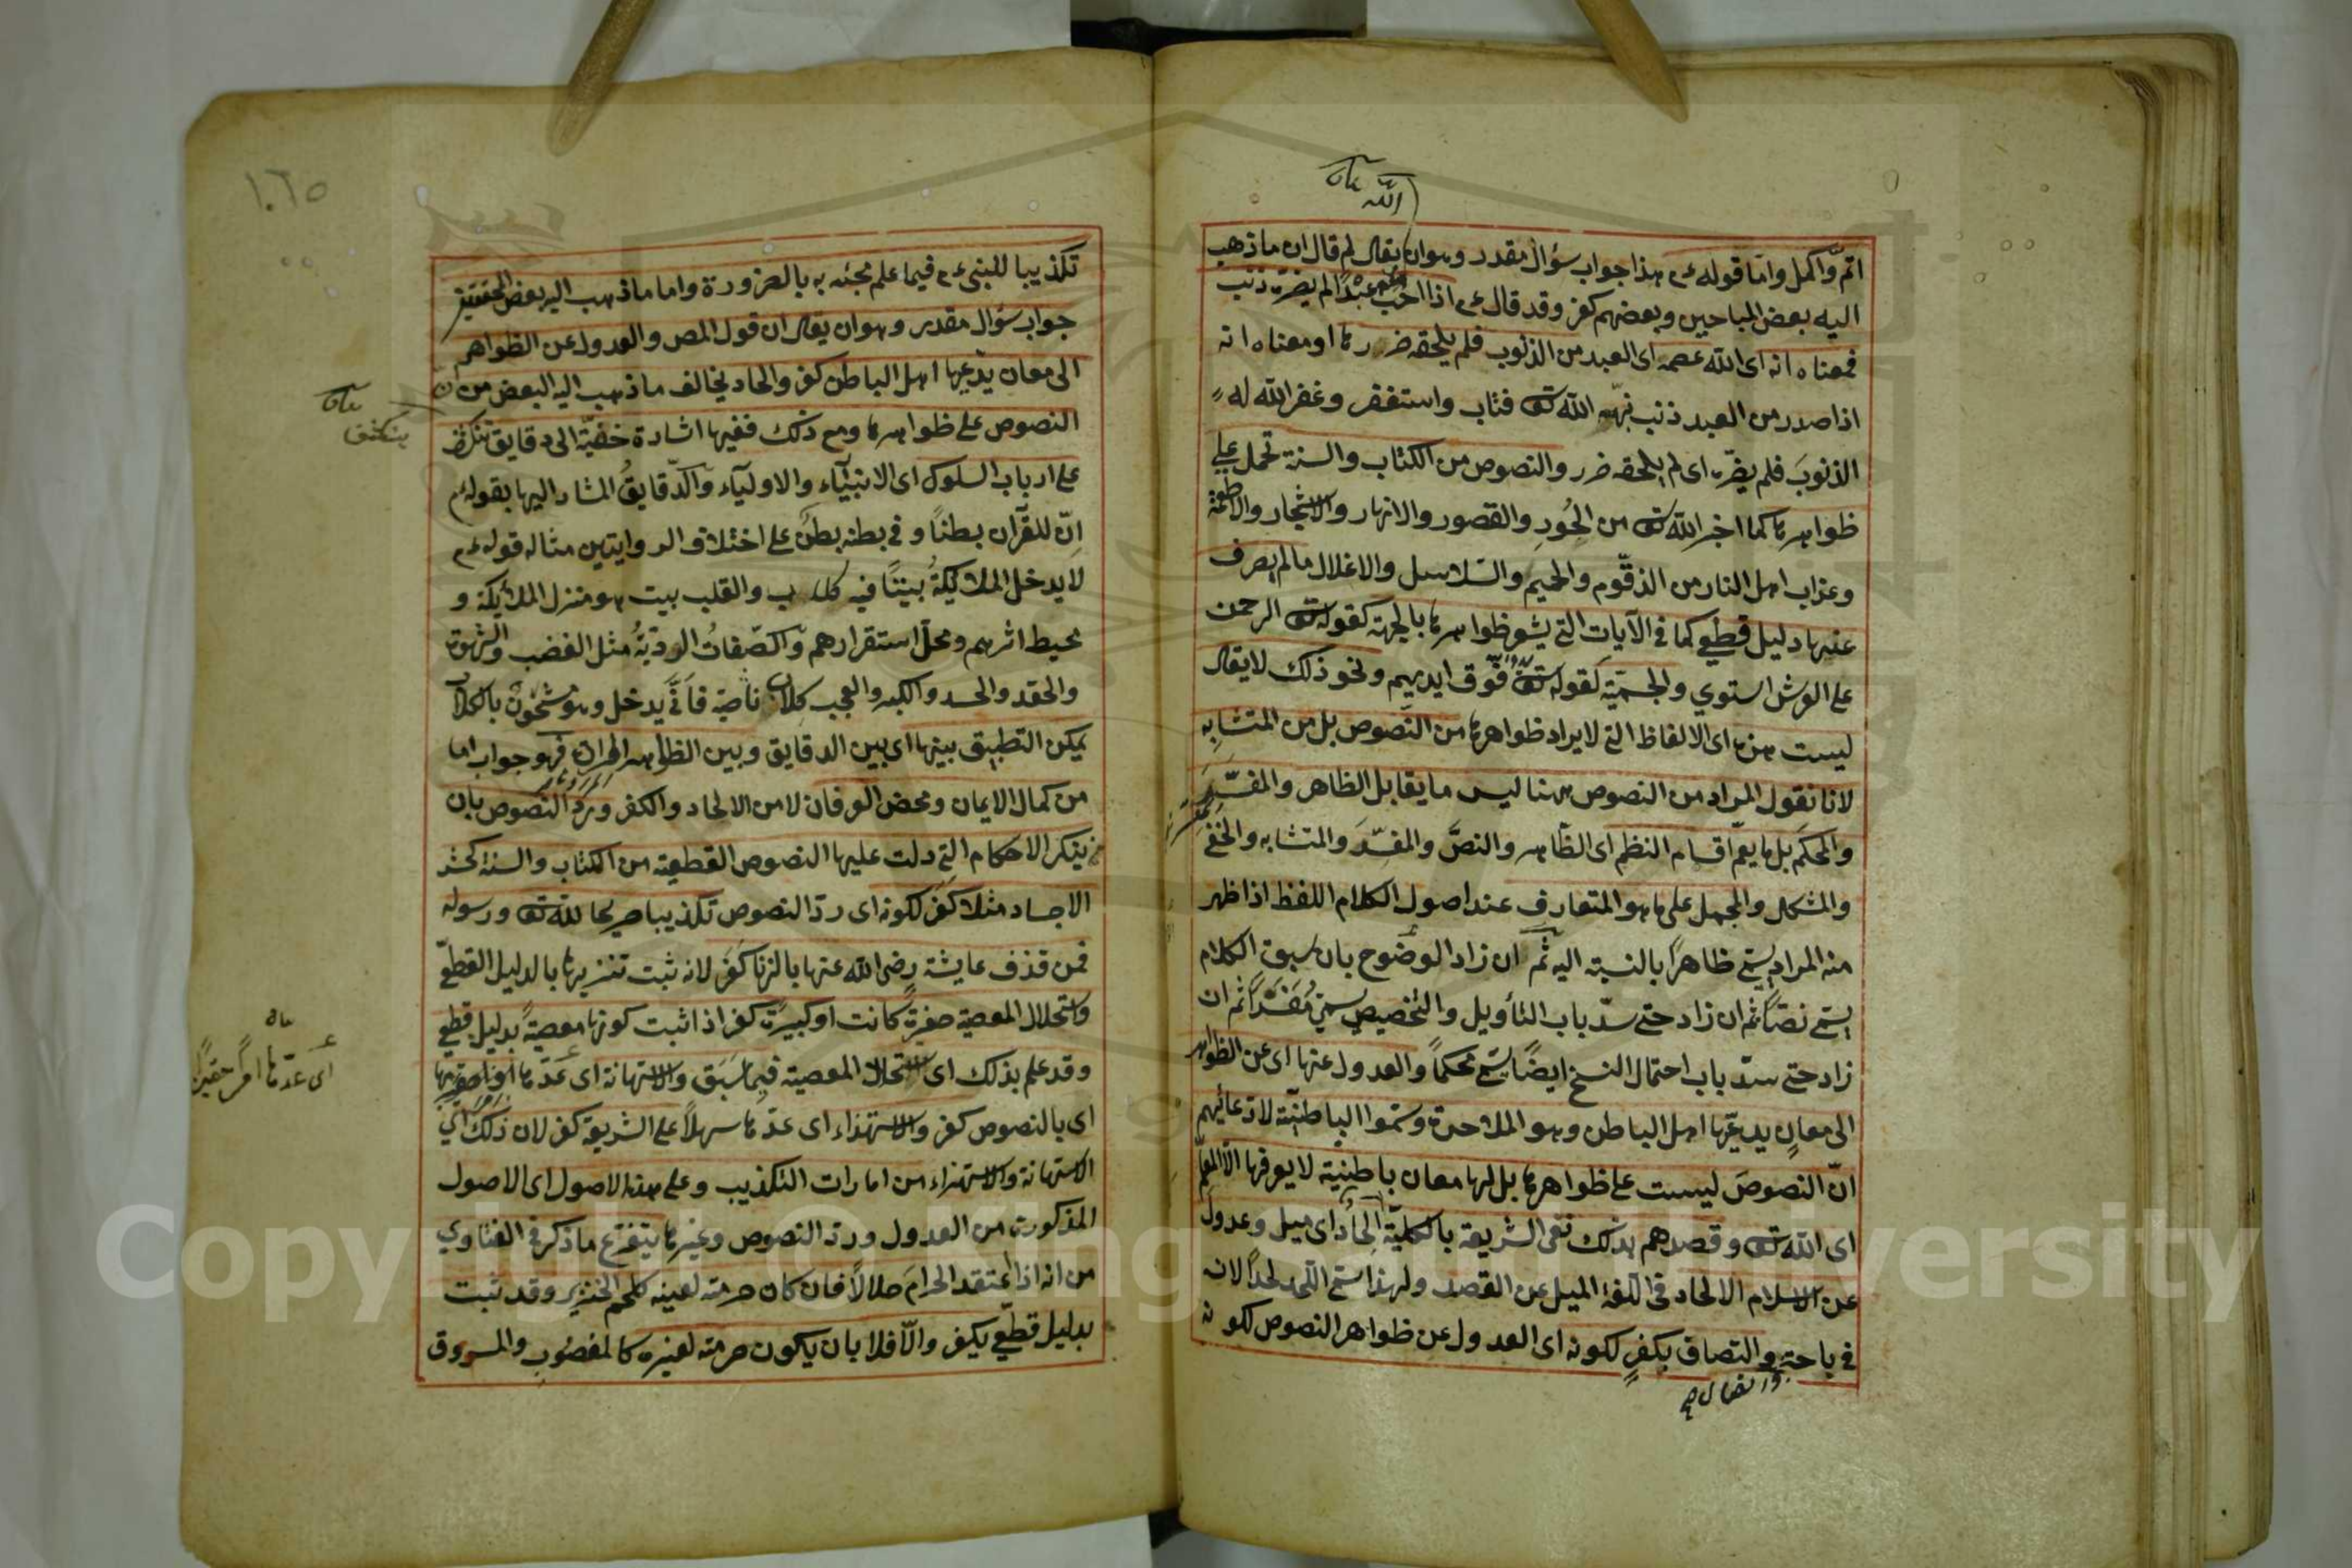 الله بيان
اتم واكمل واما قوله ءم هذا جواب سؤال مقدر وهو ان يقال لم قال ان ما ذهب
اليه بعض المباحيين وبعضهم كفر وقد قال ءم اذا احب الله عبدا لم يضره ذنب
فمعناه انه اى الله عصمه اى العبد من الذنوب فلم يلحقه ضررها او معناه انه
اذا صدر من العبد ذنب نبهه الله تعالى فتاب واستغفر وغفر الله له
الذنوب فلم يضره اى لم يلحقه ضرر والنصوص من الكتاب والسنة تحمل على
ظواهرها كما اخبر الله تعالى من الحور والقصور والانهار والاشجار والاطعمة
وعذاب اهل النار من الزقوم والحميم والسلاسل والاغلال ما لم يصرف
عنها دليل قطعي كما في الآيات التي يشعر ظواهرها بالجهة كقوله تعالى الرحمن
على العرش استوي والجسمية كقوله تعالى يد الله فوق ايديهم ونحو ذلك لا يقال
ليست هذه اى الالفاظ التي لا يراد ظواهرها من النصوص بل من المتشابه
لانا نقول المراد من النصوص ههنا ليس ما يقابل الظاهر والمفسر
والمحكم بل ما يعم اقسام النظم اى الظاهر والنص والمفسر والمتشابه والخفي
والمشكل والمجمل على ما هو المتعارف عند اصول الكلام اللفظ اذا ظهر
منه المراد يسمى ظاهرا بالنسبة اليه ثم ان زاد الوضوح بان سيق الكلام
يسمى نصا ثم ان زاد حتى سد باب التأويل والتخصيص يسمى مفسرا ثم ان
زاد حتى سد باب احتمال النسخ ايضا يسمى محكما والعدول عنها اى عن الظواهر
الى معان يدعيها اهل الباطن وهو الملاحدة وسموا الباطنية لادعائهم
ان النصوص ليست على ظواهرها بل لها معان باطنية لا يعرفها الا المعلم
اى الله تعالى وقصدهم بذلك نفى الشريعة بالكلية الحاد اى ميل وعدول
عن الاسلام الالحاد في اللغة الميل عن القصد ولهذا سمى اللحد لحدا لانه
في ناحية والتصاق بكفر لكونه اى العدول عن ظواهر النصوص لكونه
واتصال
١٠٦٥
تكذيبا للنبى ءم فيما علم مجئه به بالضرورة واما ما ذهب اليه بعض المحققين
جواب سؤال مقدر وهو ان يقال ان قول المص والعدول عن الظواهر
الى معان يدعيها اهل الباطن كفر والحاد يخالف ما ذهب اليه البعض من ان
النصوص على ظواهرها ومع ذلك ففيها اشارة خفية الى دقايق تنكشف
على ارباب السلوك اى الانبياء والاولياء والدقايق المشار اليها بقوله ءم
ان للقرآن بطنا وفي بطنه بطن على اختلاف الروايتين مثاله قوله ءم
لا يدخل الملائكة بيتا فيه كلب والقلب بيت هو منزل الملائكة و
محيط اثرهم ومحل استقرارهم والصفات الردية مثل الغضب والشهوة
والحقد والحسد والكبر والعجب كلاب نابحة فاَنّى يدخل وهو مشحون بالكلاب
يمكن التطبيق بينها اى بين الدقايق وبين الظواهر المرادة فهو جواب اما
من كمال الايمان ومحض العرفان لا من الالحاد والكفر ورد النصوص بان
ينكر الاحكام التي دلت عليها النصوص القطعية من الكتاب والسنة كحشر
الاجساد مثلا كفر لكونه اى رد النصوص تكذيبا صريحا لله تعالى ورسوله
فمن قذف عايشة رضى الله عنها بالزنا كفر لانه ثبت تنزيهها بالدليل القطعي
واستحلال المعصية صغيرة كانت او كبيرة كفر اذا ثبت كونها معصية بدليل قطعي
وقد علم بذلك اى استحلال المعصية فيما سبق والاستهانة اى عدها
اى بالنصوص كفر والاستهزاء اى عدها سهلا على الشريعة كفر لان ذلك اى
الاستهانة والاستهزاء من امارات التكذيب وعلى هذا الاصول اى الاصول
المذكورة من العدول ورد النصوص وغيرها يتفرع ما ذكر في الفتاوي
من انه اذا اعتقد الحرام حلالا فان كان حرمته لعينه كلحم الخنزير وقد ثبت
بدليل قطعي يكفر والا فلا بان يكون حرمته لغيره كالمغصوب والمسروق
تنكشف بيان
اى عدها امرا حقيرا
Copyright © King Saud University